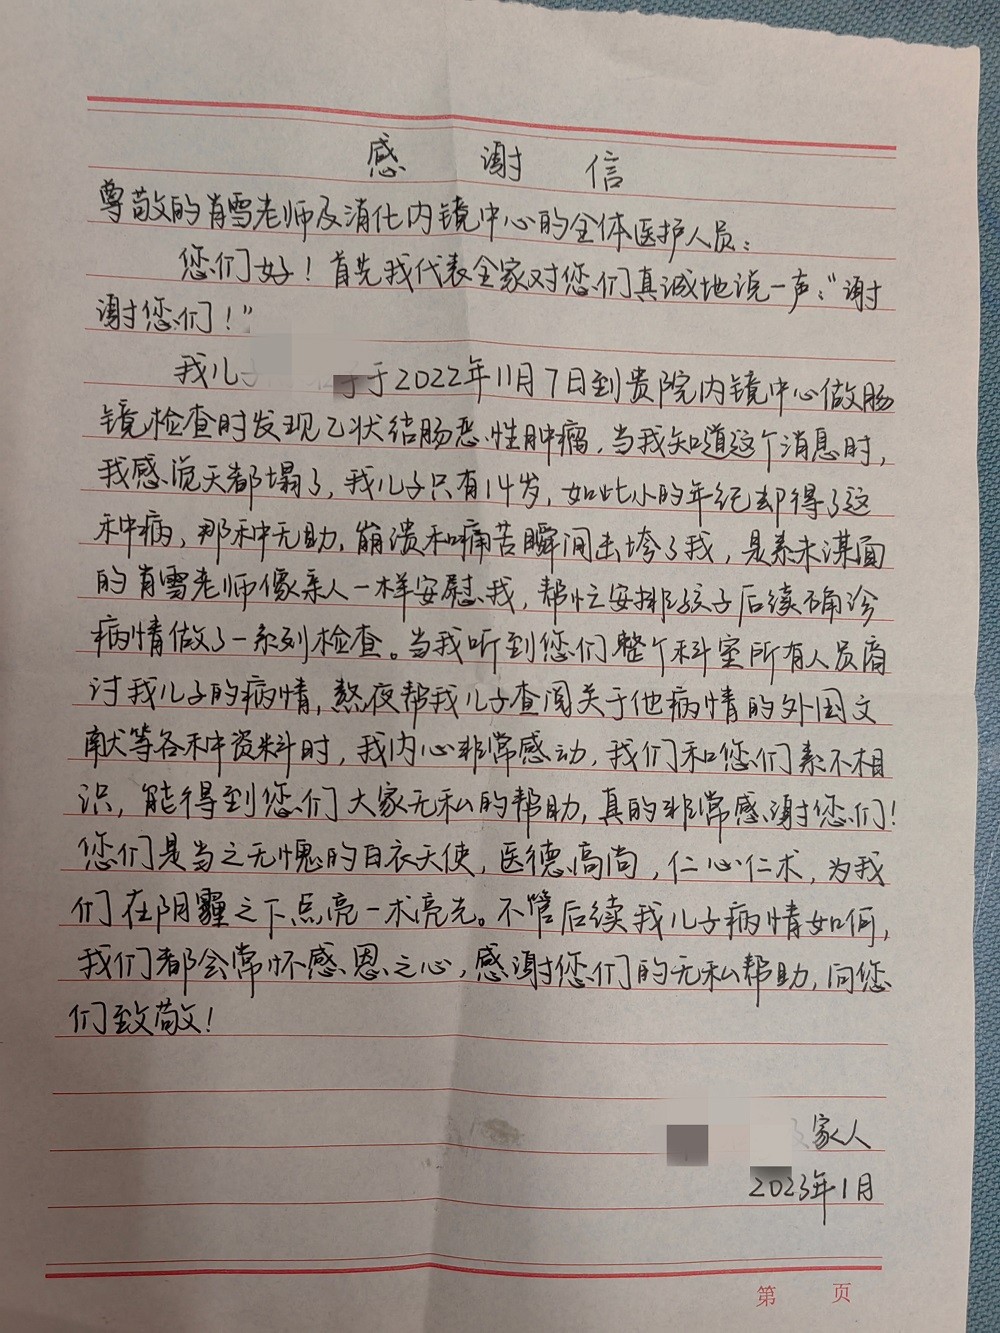 感谢信
尊敬的肖雪老师及消化内镜中心的全体医护人员：
您们好！首先我代表全家对您们真诚地说一声：“谢
谢您们！”
我儿子于2022年11月7日到贵院内镜中心做肠
镜检查时发现乙状结肠恶性肿瘤，当我知道这个消息时，
我感觉天都塌了，我儿子只有14岁，如此小的年纪却得了这
种病，那种无助，崩溃和痛苦瞬间击垮了我，是素未谋面
的肖雪老师像亲人一样安慰我，帮忙安排孩子后续确诊
病情做了一系列检查。当我听到您们整个科室所有人员商
讨我儿子的病情，熬夜帮我儿子查阅关于他病情的外国文
献等各种资料时，我内心非常感动，我们和您们素不相
识，能得到您们大家无私的帮助，真的非常感谢您们！
您们是当之无愧的白衣天使，医德高尚，仁心仁术，为我
们在阴霾之下点亮一术亮光。不管后续我儿子病情如何，
我们都会常怀感恩之心，感谢您们的无私帮助，向您
们致敬！
家人
2023年1月
第 页